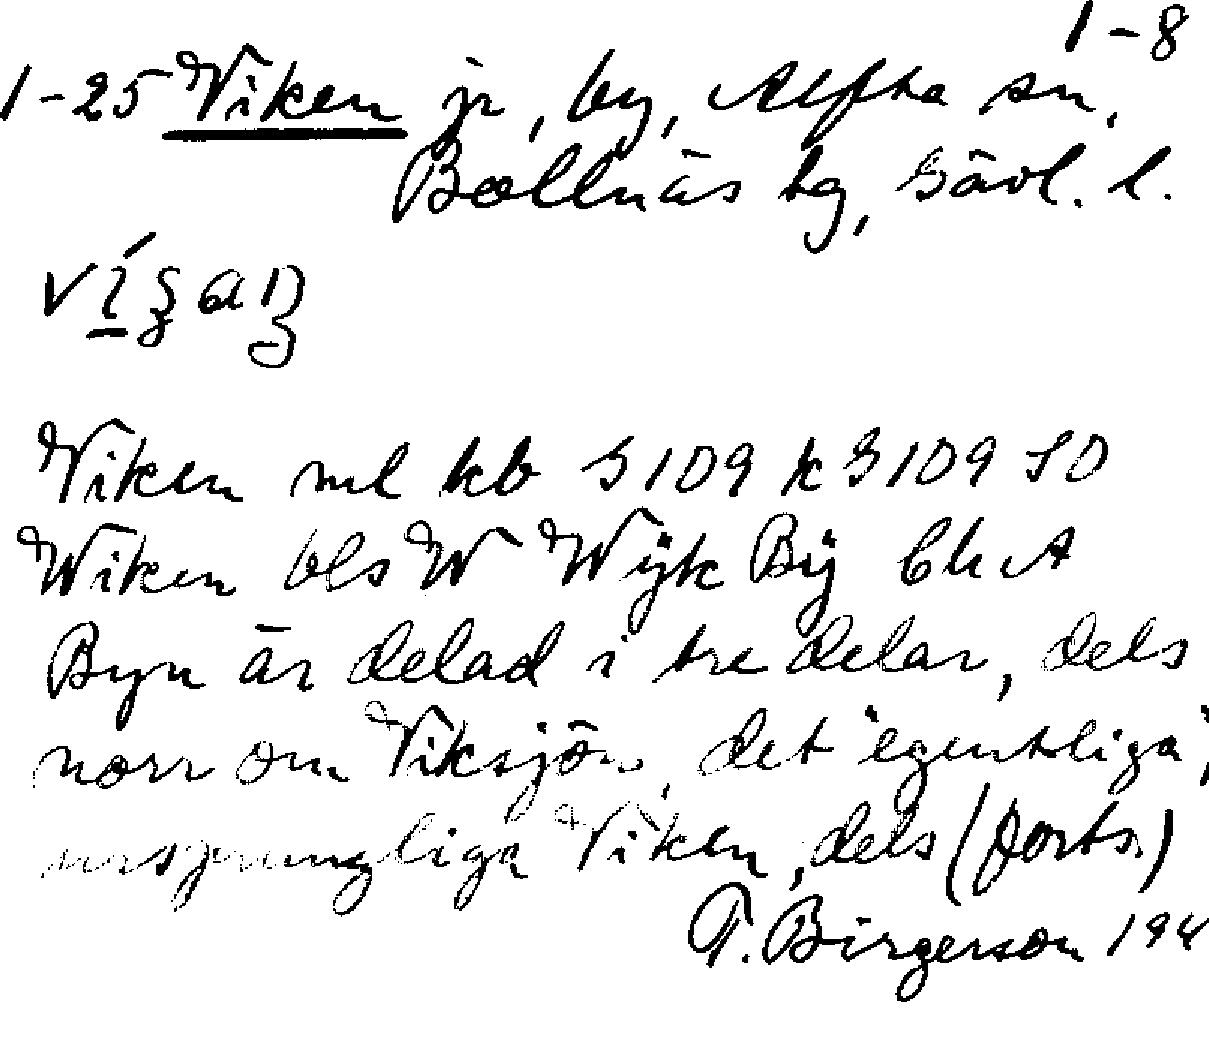 1-8
1-25 Viken jr, by, Alfta sn,
Bollnäs tg, Gävl. l.
Viken ml kb G109 k G109 SO
Wiken bls W Wÿk Bÿ
Byn är delad i tre delar, dels
norr om Viksjön, det "egentliga",
ursprungliga Viken, dels (forts.)
T. Birgerson 194